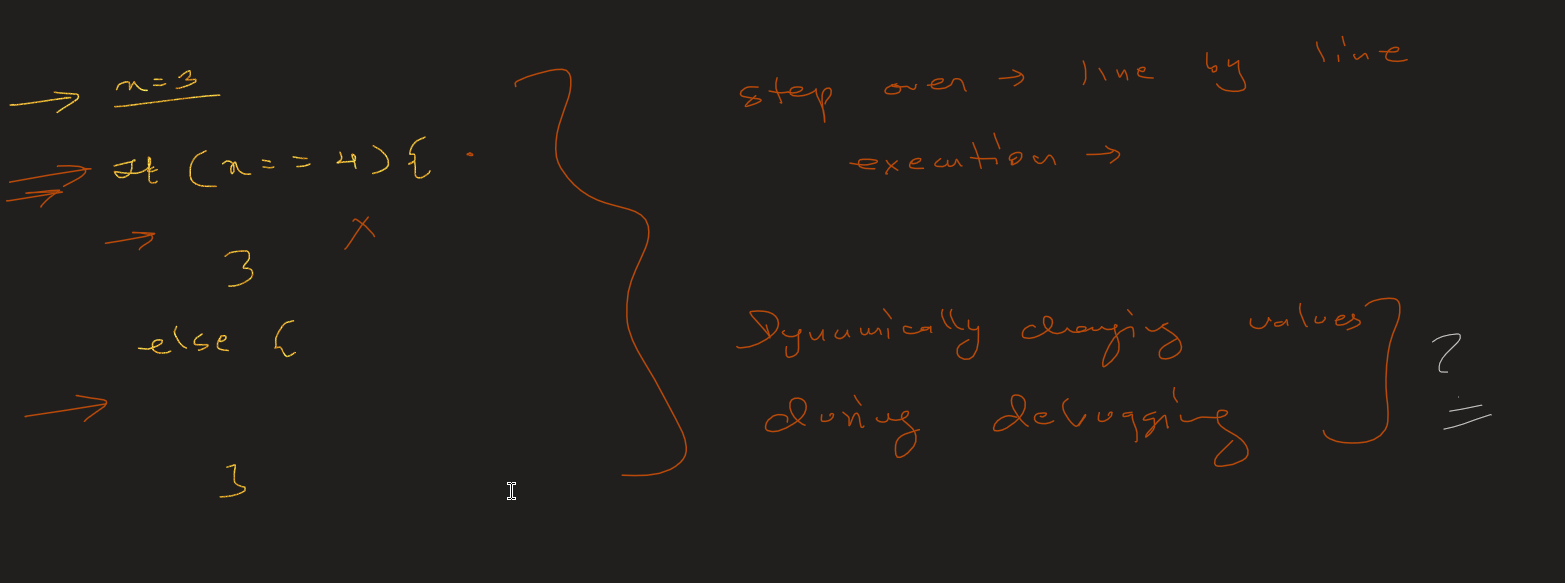 n=3
If (n==4) {
}
else {
}
step over → line by line
execution →
Dynamically changing values
during debugging ?